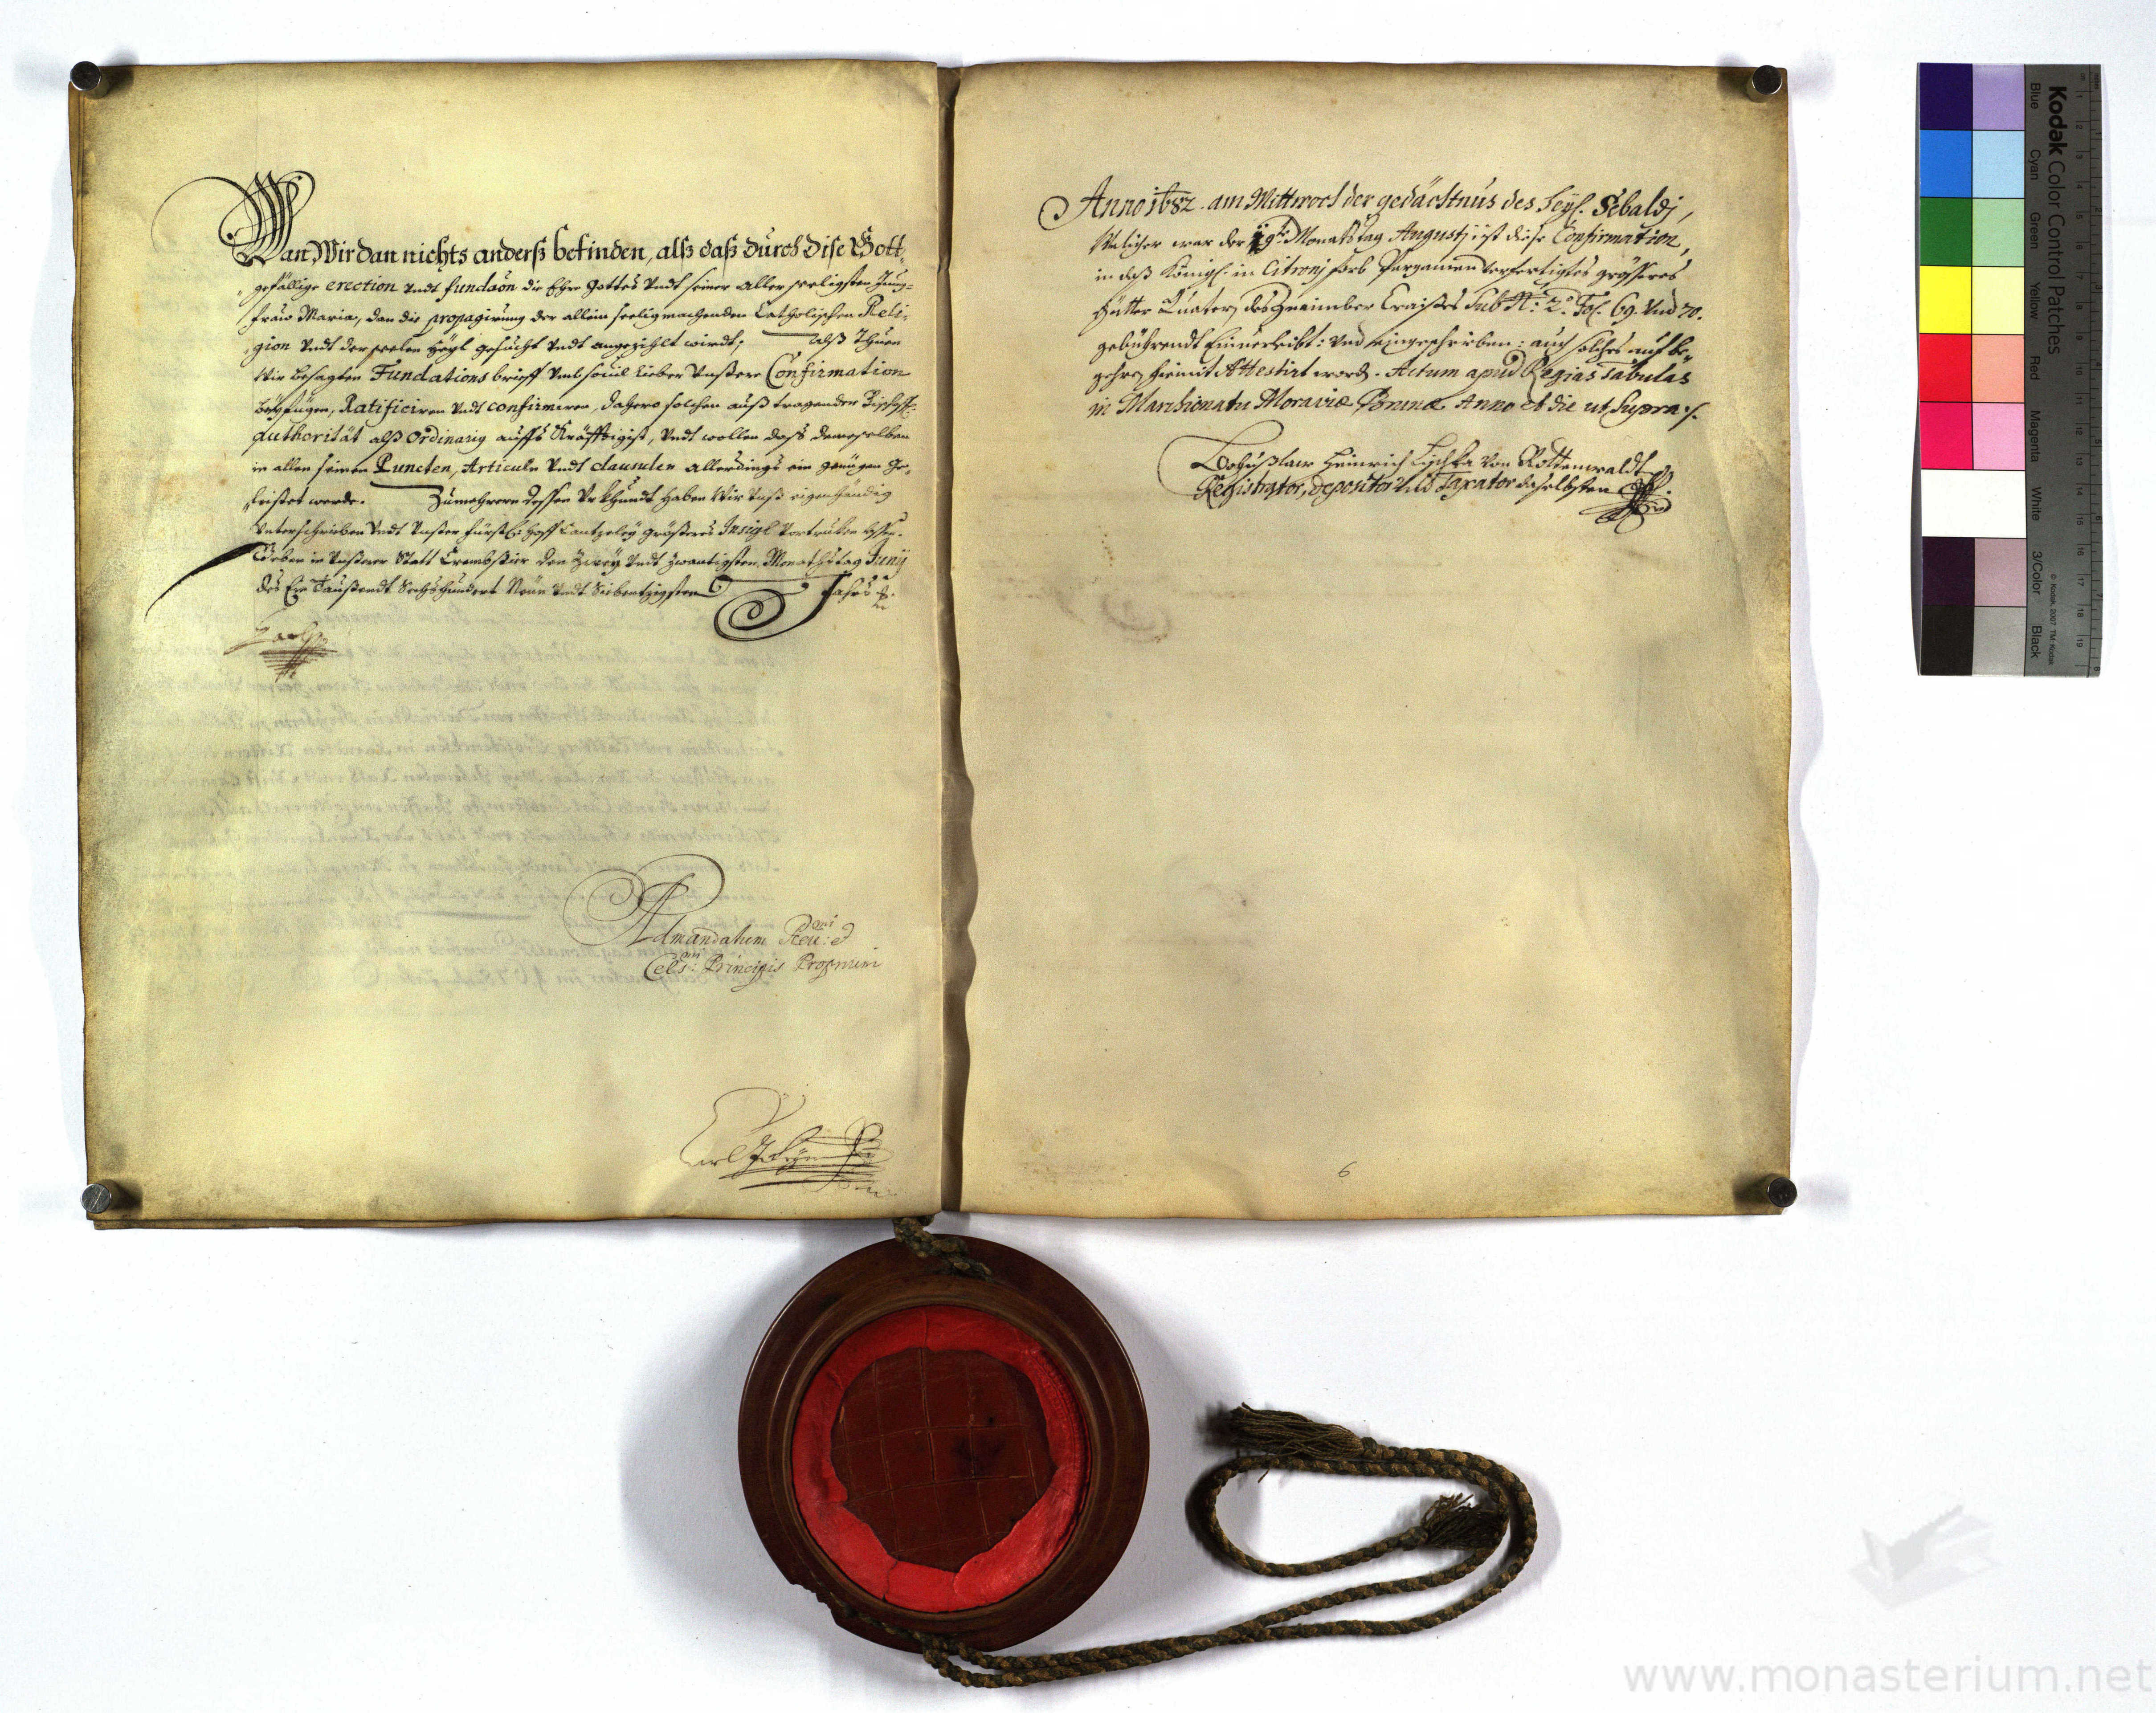 Wan Wir dan nichts anderß befinden, alß daß durch dise Gott-
gefällige erection vndt fundaõn die Ehre Gottes vndt seiner Aller seeligsten Jung-
fraw Maria, dan die propagirung der allein seeligmachenden Catholischen Reli-
gion vndt der seelen Heyl gesucht vndt angezihlt wirdt; Alß Thuen
Wir besagten Fundations brieff Vnsere Confirmation
beyfügen, Ratificiren vndt confirmiren, dahero solchen auß tragender Bischoff:
authorität alß Ordinariy auffs Kräfftigist, vndt wollen daß demselben
in allen seinen Puncten, Articuln vndt clausulen allerdings ein genügen ge-
leistet werde. Zu mehrern dessen Vrkhundt haben Wir Vnß eigenhändig
Vnterschrieben vndt Vnser Fürstl: Hoff Cantzeley grösseres Insigl
Geben in Vnserer Statt Crembsier den Zwey vndt Zwantzigsten Monathstag Junij
des Ein Taußendt Sechshundert Neün vndt Siebentzigsten Jahrs
Carl
Ad mandatum Reu:dmi et
Cels:mi Principis Proprium
Anno 1682. am Mittwoch der gedächtnus des Heyl. Sebaldj,
Welicher war der 19te Monatstag Augustj ist diese Confirmation,
in daß Königl: in Citronj farb Pergamen verfertigtes grösseres
Gütter Quatern des Znaimber Craises Sub N: 2o. Fol. 69. Vnd 70.
gebührendt Einverleibt: vnd eingeschriben: auch solches auf be-
gehrn hiemit Attestirt wordn. Actum apud Regias Tabulas
in Marchionatu Moraviæ Brunæ Anno et die ut Supra
Bohußlaw Heinrich von Rottenwaldt
Registrator, Depositor vnd Taxator daselbsten
6
Kodak Color Control Patches
Blue Cyan Green Yellow Red Magenta White 3/Color Black
© Kodak, 2007 TM: Kodak
www.monasterium.net